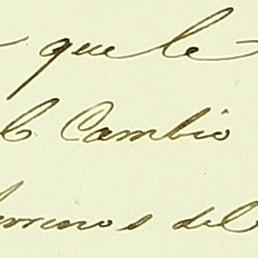 que le
el Cambio
terrenos del